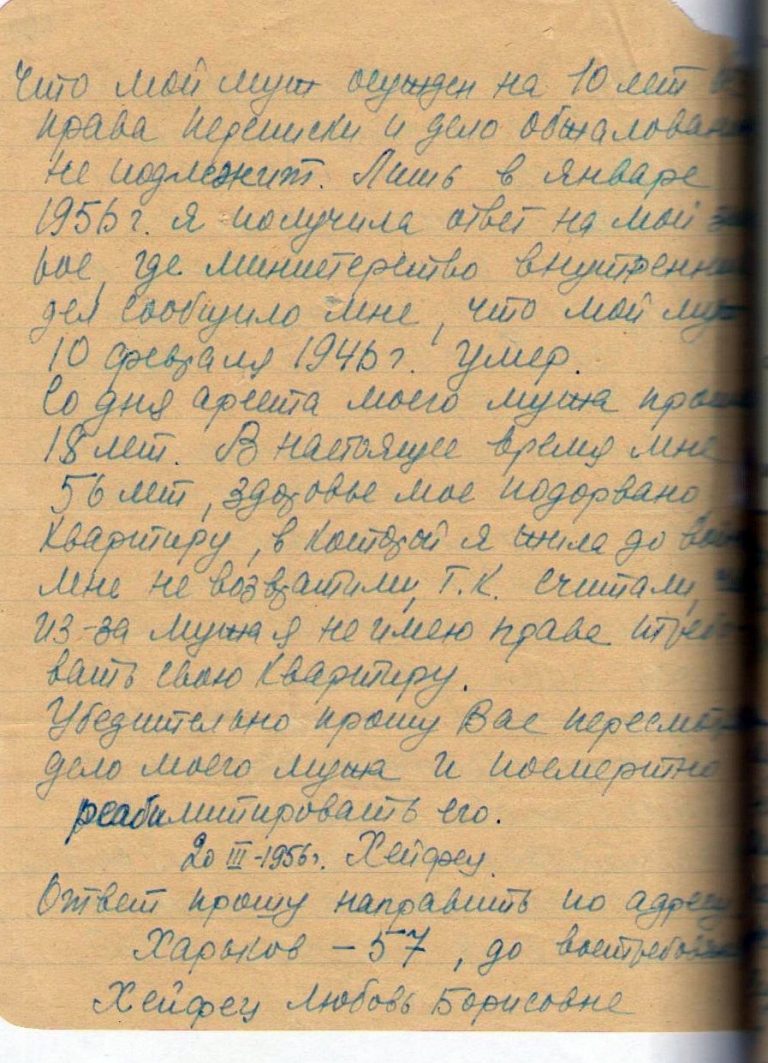 что мой муж осужден на 10 лет без
права переписки и дело обжалованию
не подлежит. Лишь в январе
1956 г. я получила ответ на мой
где министерство внутренних
дел сообщило мне, что мой муж
10 февраля 1946 г. умер.
Со дня ареста моего мужа прошло
18 лет. В настоящее время мне
56 лет, здоровье мое подорвано,
квартиру, в которой я жила до войны
мне не возвратили, т.к. считали, что
из-за мужа я не имею права требо-
вать свою квартиру.
Убедительно прошу Вас пересмотреть
дело моего мужа и посмертно
реабилитировать его.
20 III-1956г. Хейфец
Ответ прошу направить по адресу
Харьков - 57, до востребования
Хейфец Любовь Борисовне